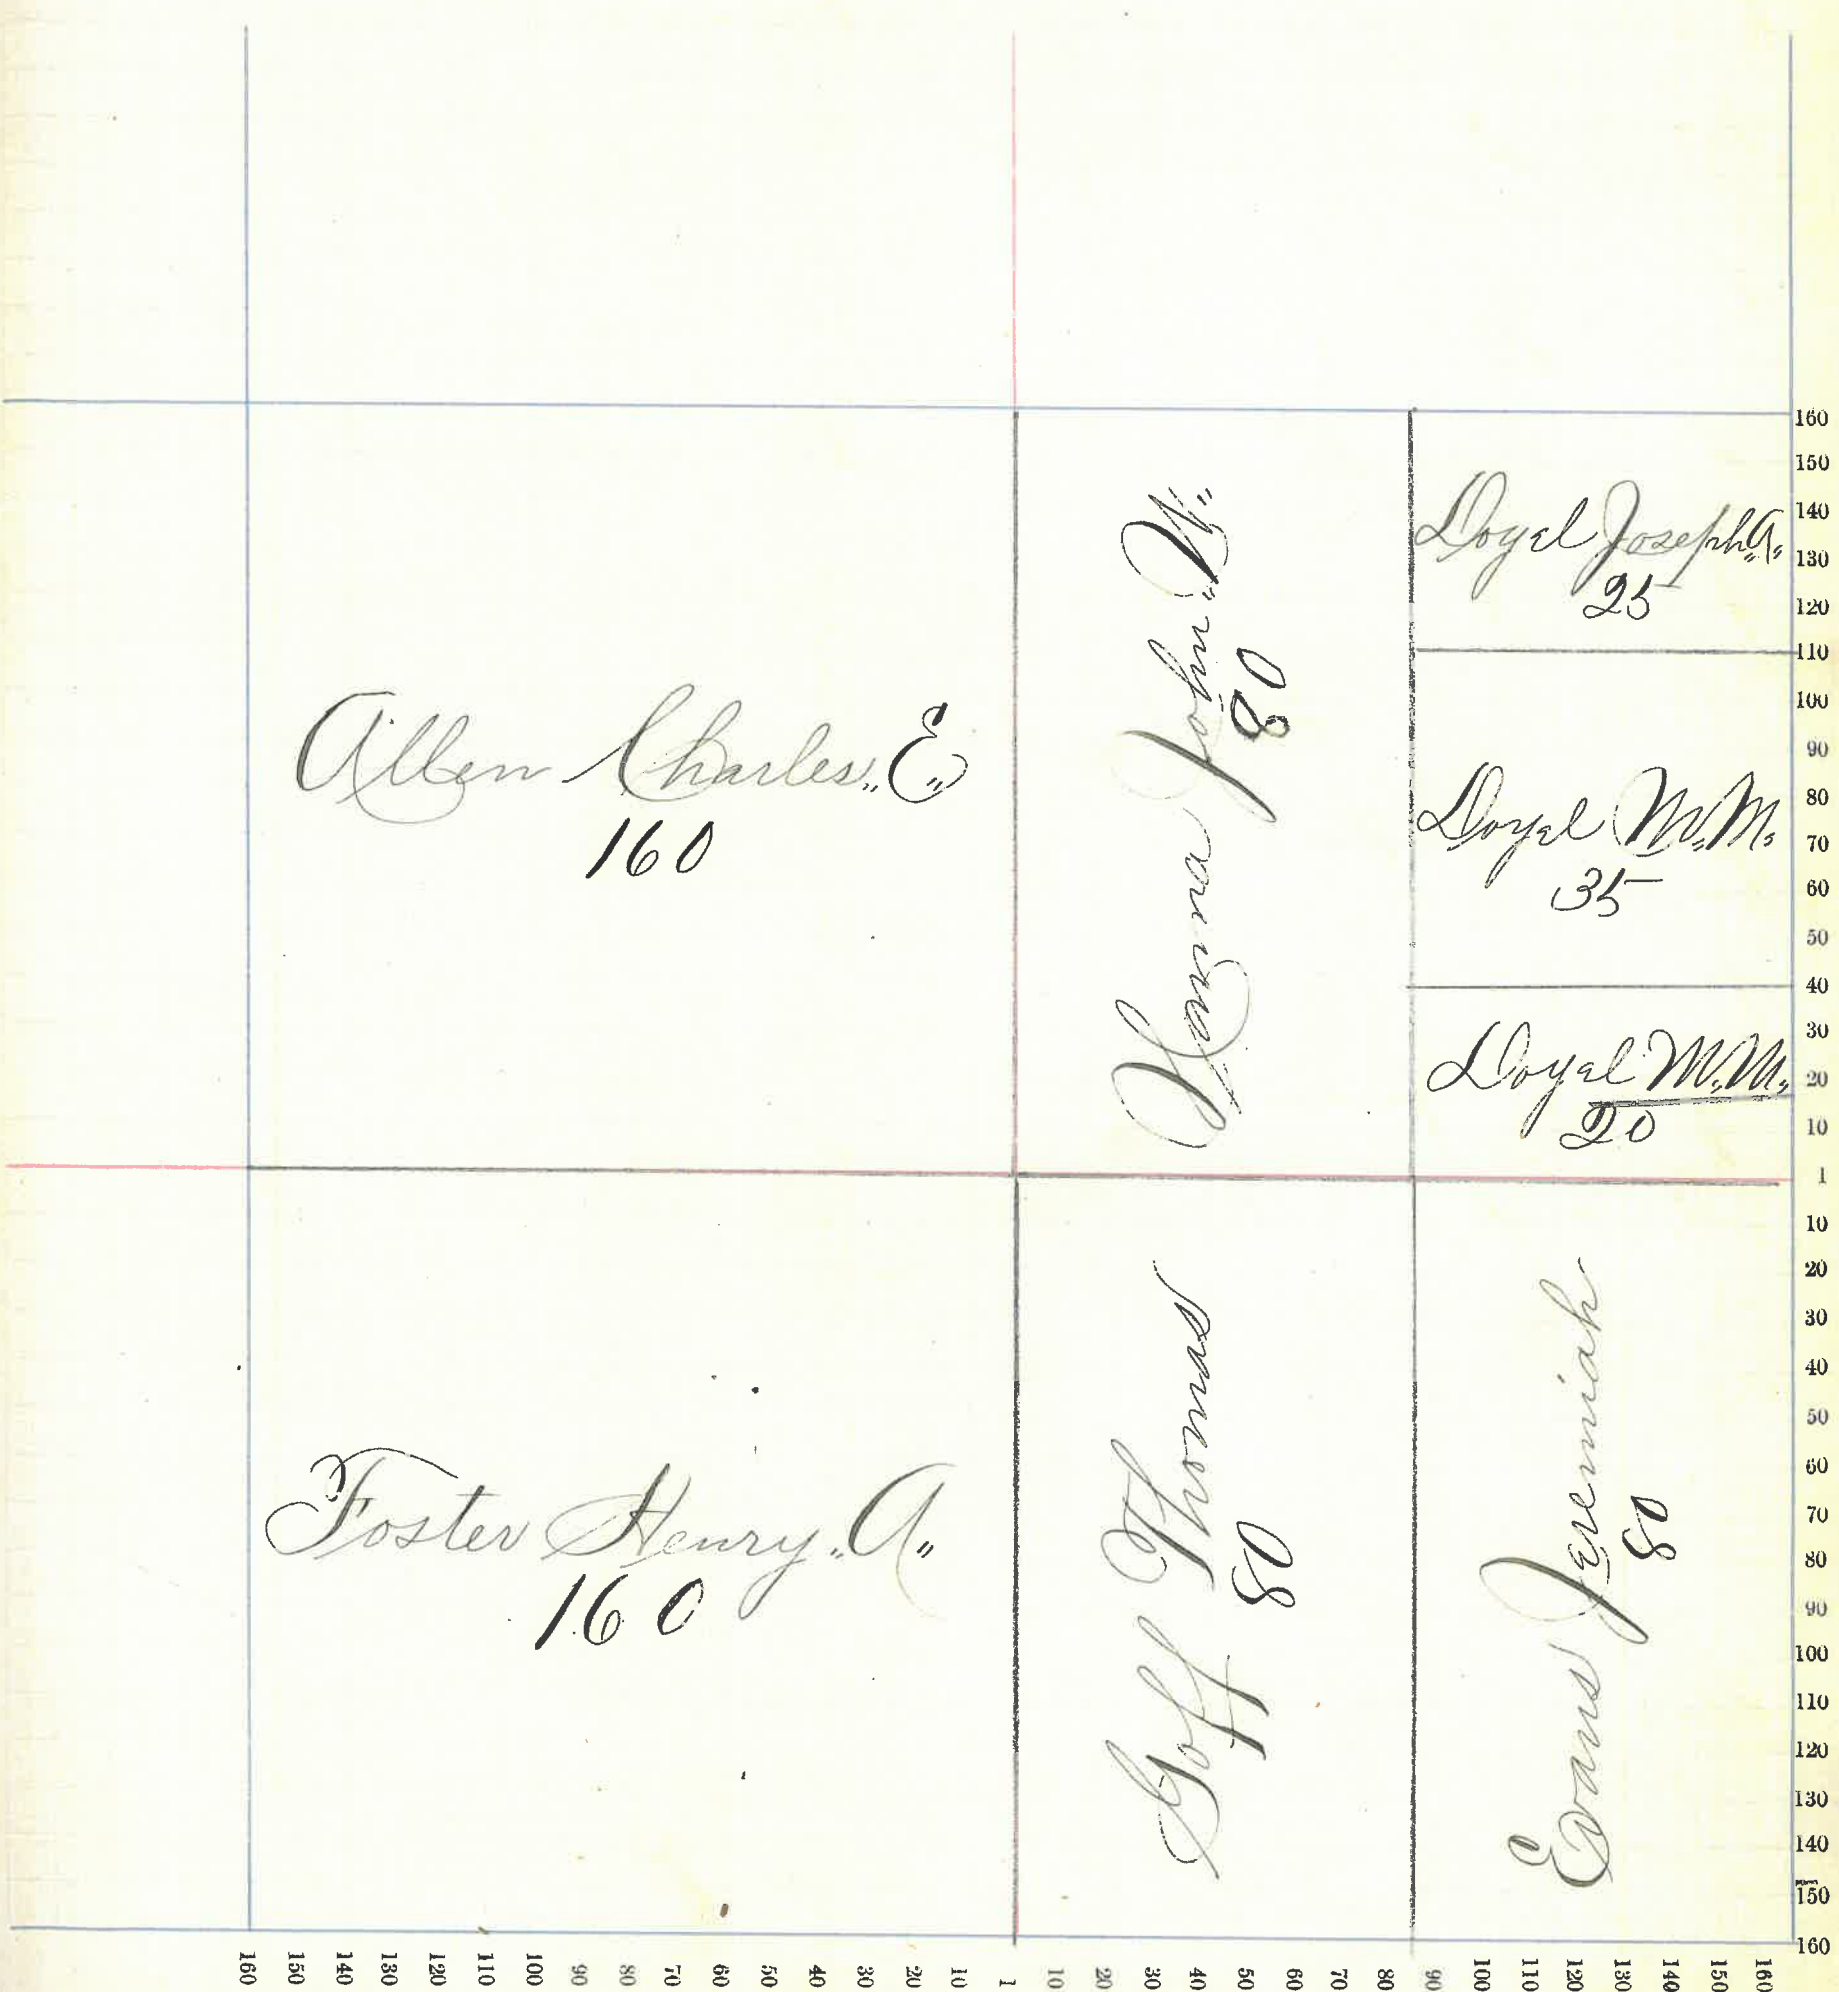 Allen Charles „ E „
160
Hanna John „ W „
80
Doyel Joseph „ A „
25
Doyel M „ M „
35
Doyel M „ M „
20
Foster Henry „ A „
160
Goff Thomas
80
Evans Jeremiah
80
160
150
140
130
120
110
100
90
80
70
60
50
40
30
20
10
1
10
20
30
40
50
60
70
80
90
100
110
120
130
140
150
160
160 150 140 130 120 110 100 90 80 70 60 50 40 30 20 10 1 10 20 30 40 50 60 70 80 90 100 110 120 130 140 150 160